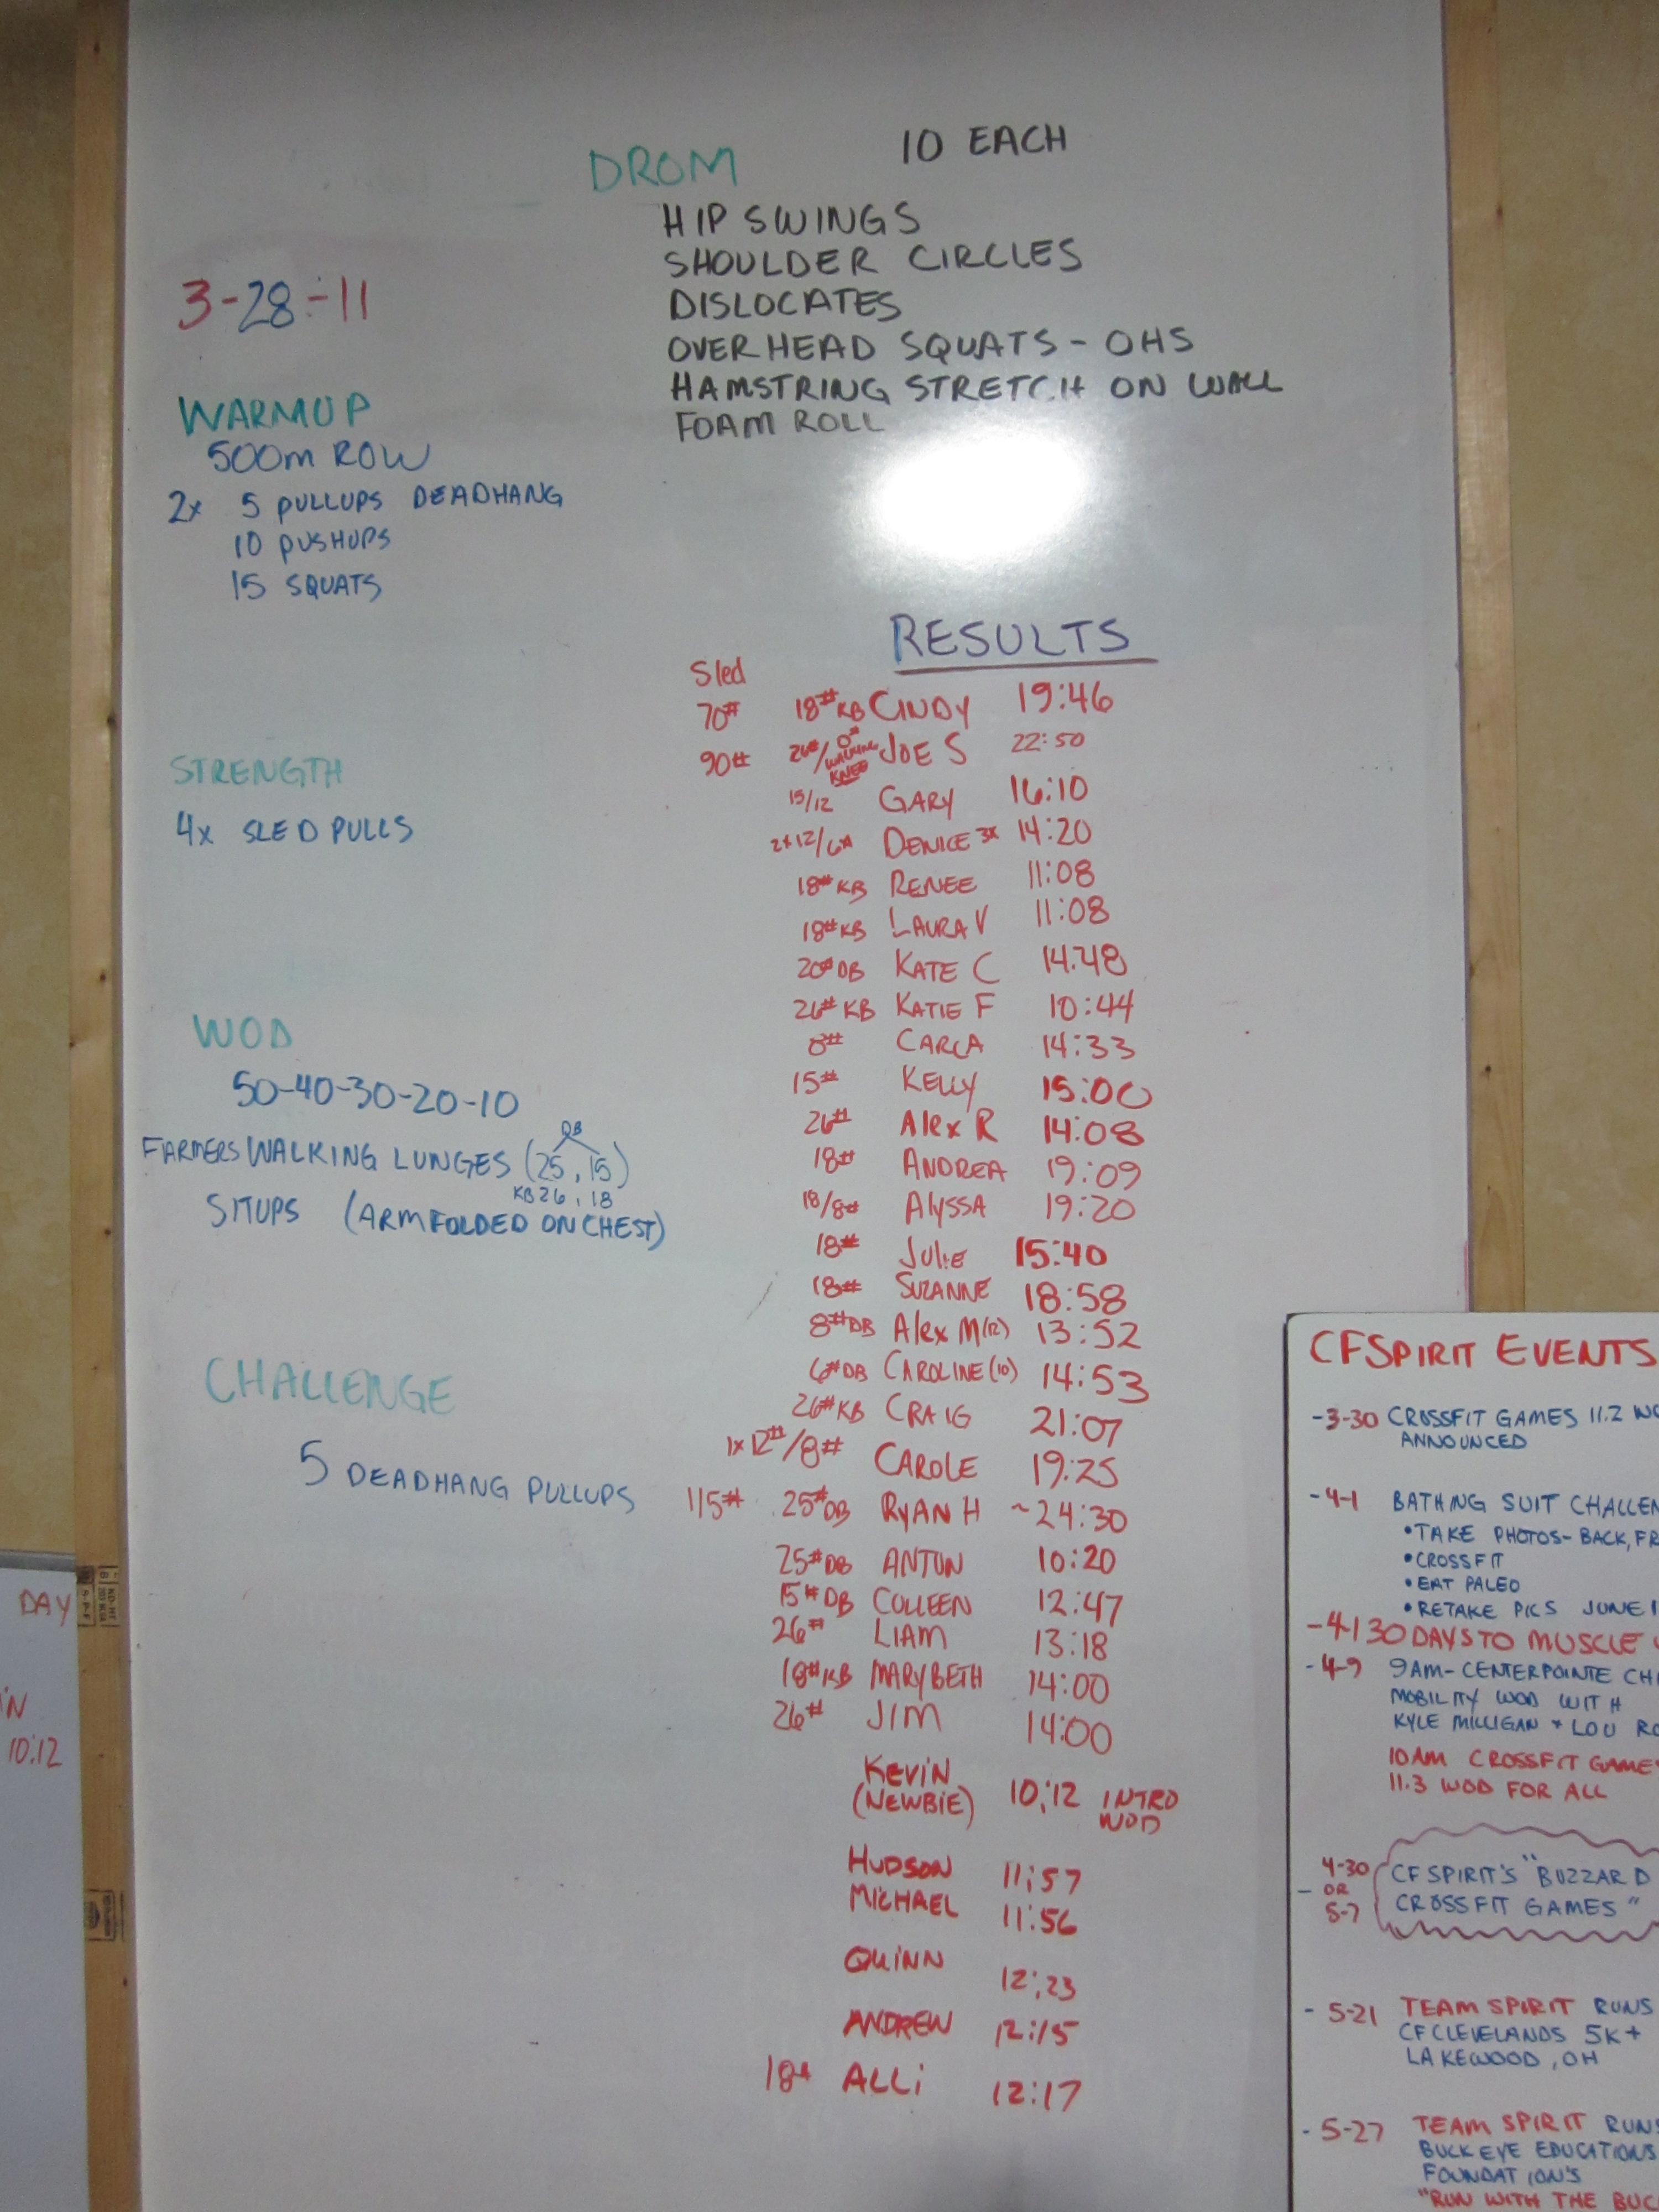 DROM 10 EACH
HIP SWINGS
SHOULDER CIRCLES
DISLOCATES
OVERHEAD SQUATS - OHS
HAMSTRING STRETCH ON WALL
FOAM ROLL
3-28-11
WARMUP
500m ROW
2x 5 PULLUPS DEADHANG
10 PUSHUPS
15 SQUATS
STRENGTH
4x SLED PULLS
WOD
50-40-30-20-10
DB
FARMERS WALKING LUNGES (25, 15)
KB 26, 18
SITUPS (ARM FOLDED ON CHEST)
CHALLENGE
5 DEADHANG PULLUPS
RESULTS
Sled
70# 18# KB CINDY 19:46
90# 26#/0# WALKING KNEE JOE S 22:50
15/12 GARY 16:10
2x12/6# DENICE 3x 14:20
18# KB RENEE 11:08
18# KB LAURA V 11:08
20# DB KATE C 14:48
26# KB KATIE F 10:44
8# CARLA 14:33
15# KELLY 15:00
26# Alex R 14:08
18# ANDREA 19:09
18/8# Alyssa 19:20
18# Julie 15:40
18# SUZANNE 18:58
8# DB Alex M (12) 13:52
6# DB CAROLINE (10) 14:53
26# KB CRAIG 21:07
1x12#/8# CAROLE 19:25
115# 25# DB RYAN H ~24:30
25# DB ANTON 10:20
15# DB COLLEEN 12:47
26# LIAM 13:18
18# KB MARYBETH 14:00
26# JIM 14:00
KEVIN
(NEWBIE) 10:12 INTRO
WOD
HUDSON 11:57
MICHAEL 11:56
QUINN 12:23
ANDREW 12:15
18# ALLi 12:17
DAY
10:12
CFSPIRIT EVENTS
-3-30 CROSSFIT GAMES 11.2
ANNOUNCED
-4-1 BATHING SUIT
• TAKE PHOTOS - BACK,
• CROSSFIT
• EAT PALEO
• RETAKE PICS JUNE
-4-1 30 DAYS TO MUSCLE
-4-9 9AM - CENTERPOINTE
MOBILITY WOD WITH
KYLE MILLIGAN + LOU
10AM CROSSFIT
11.3 WOD FOR ALL
4-30
- OR
5-7
CFSPIRIT'S "BUZZARD
CROSSFIT GAMES"
- 5-21 TEAM SPIRIT RUNS
CFCLEVELANDS 5K +
LAKEWOOD, OH
- 5-27 TEAM SPIRIT
BUCKEYE EDUCATIONS
FOUNDATION'S
"RUN WITH THE